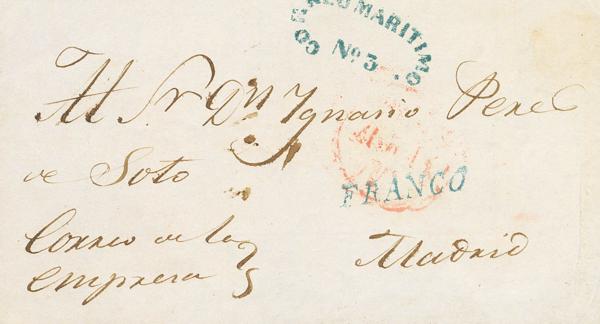 CORREO MARITIMO
Nº 3.
Al Sr Dn Ignacio Perez
de Soto
FRANCO
Correo de la
empresa
Madrid